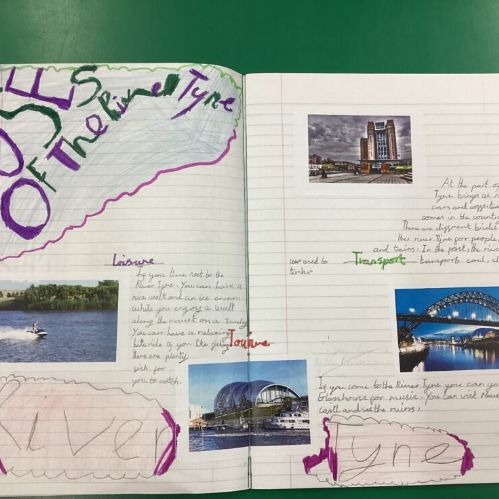 USES
Of The River Tyne
Leisure
If you live next to the
River Tyne. You can have a
nice walk and an ice cream
while you enjoy a walk
along the market on a Sunday
You can have a relaxing
bike ride or you like
there are plenty
fish for
you to catch.
River
At the port of
Tyne brings us
cars and coffee
comes in the
There are different
the river Tyne for people
and trains. In the past, the
was used to Transport transport coal,
timber
Tourism
If you come to the River Tyne you can go
Glasshouse for music. You can visit
and see the ruins!
Tyne